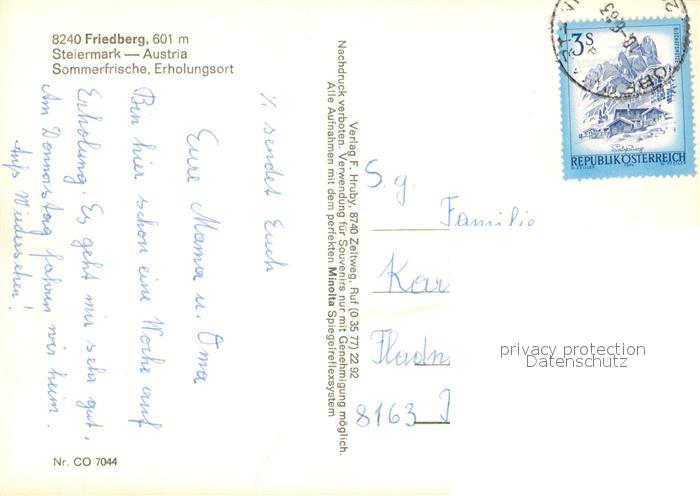 8240 Friedberg, 601 m
Steiermark — Austria
Sommerfrische, Erholungsort
½ sendet Euch
Eure Mama u. Oma
Bin hier schon eine Woche auf
Erholung. Es geht mir sehr gut.
Am Donnerstag fahren wir heim.
Aufs Wiedersehen!
Nr. CO 7044
Verlag F. Hruby, 8740 Zeltweg, Ruf (0 35 77) 22 92
Nachdruck verboten. Verwendung für Souvenirs nur mit Genehmigung möglich.
Alle Aufnahmen mit dem perfekten Minolta Spiegelreflexsystem
3 S
BISCHOFSMÜTZE
Salzburg
REPUBLIK ÖSTERREICH
S. g. Familie
Kar
Fladn
8163
privacy protection
Datenschutz